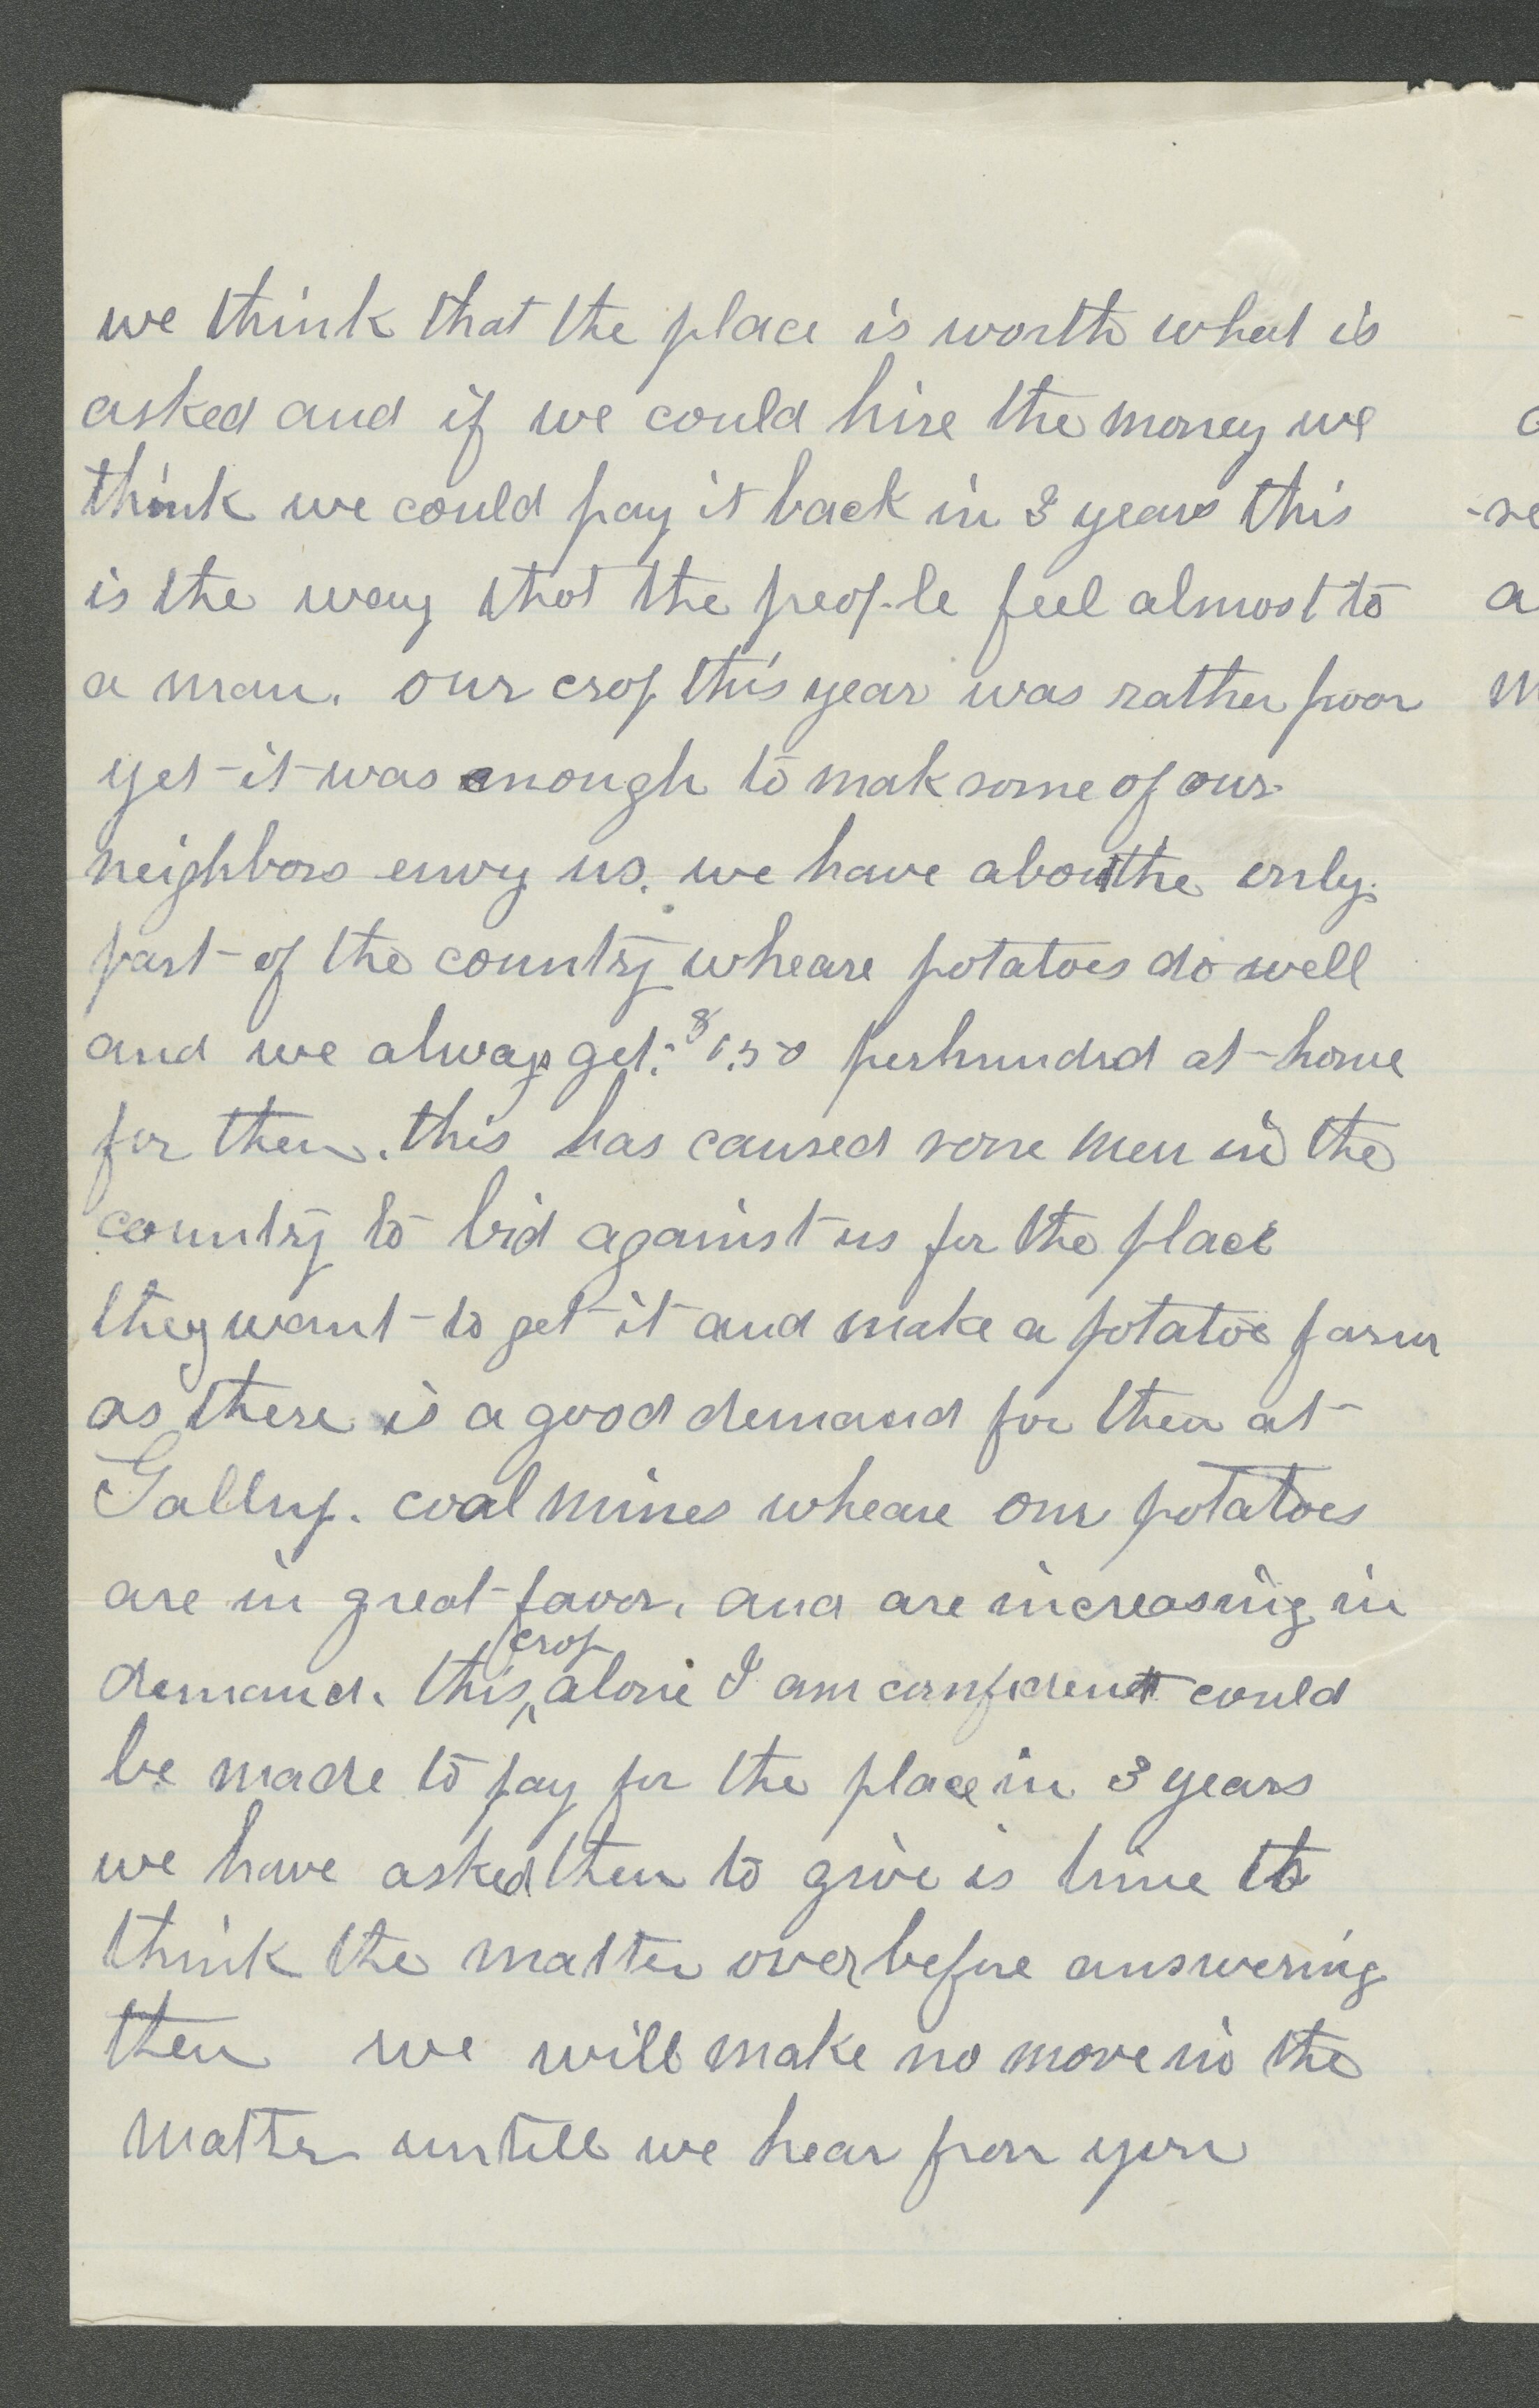 we think that the place is worth what is
asked and if we could hire the money we
think we could pay it back in 3 years this
is the way that the people feel almost to
a man. our crop this year was rather poor
yet it was enough to mak some of our
neighbors envy us. we have about the only
part of the country wheare potatoes do well
and we always get $1.50 per hundrd at home
for them. this has caused some men in the
country to bid against us for the place
they want to get it and make a potatoe farm
as there is a good demand for them at
Gallup. coal mines wheare our potatoes
are in great favor. and are increasing in
demand. this crop alone I am confident could
be made to pay for the place in 3 years
we have asked them to give is time to
think the matter over before answering
them we will make no move in the
matter untill we hear from you